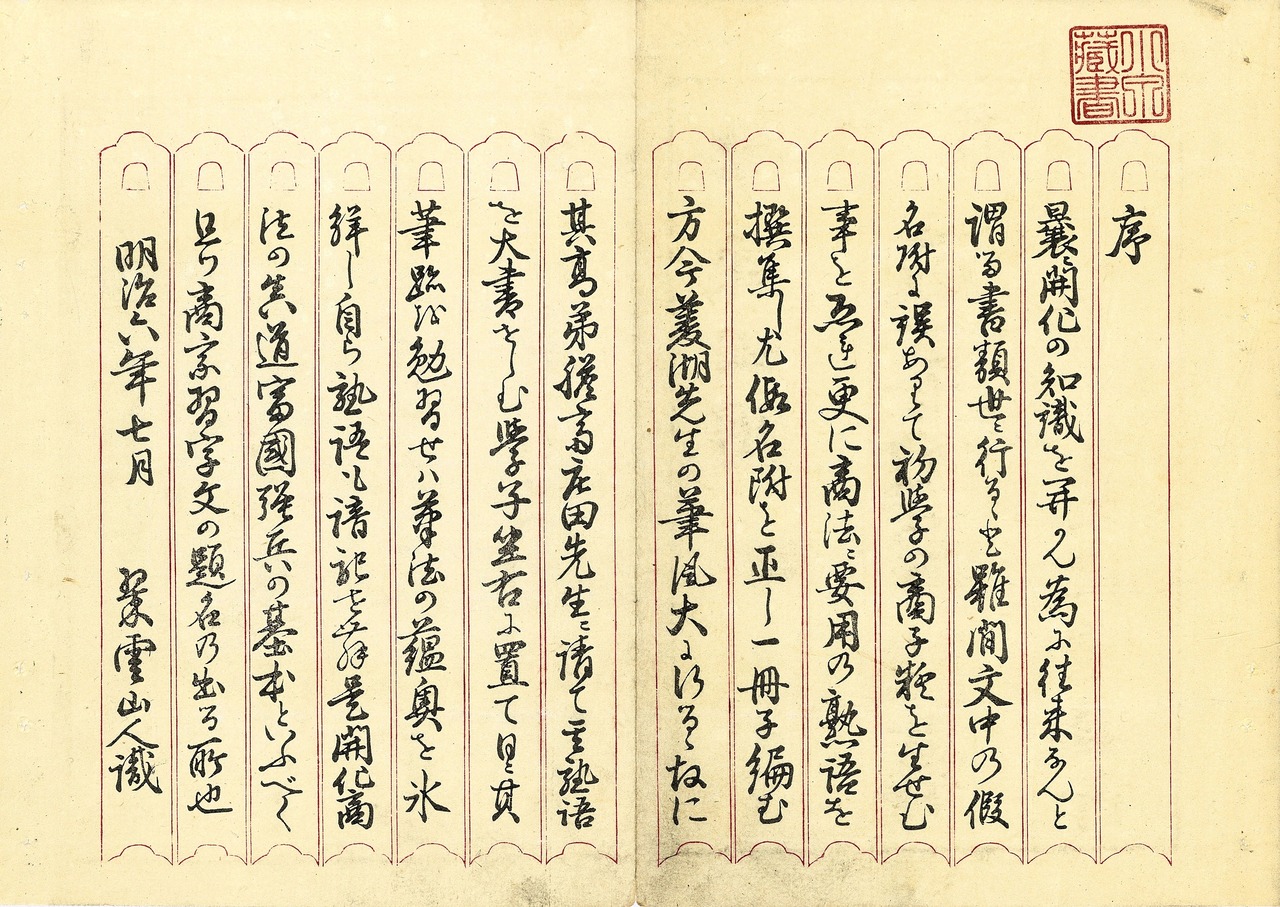 小泉藏書
序
曩ニ開化の知識を开かん為に往来なんと
謂る書類世ニ行るゝと雖間文中の假
名附に誤ありて初學の商子疑を生せむ
事を恐き更に商法ニ要用の熟語を
撰集し尤假名附を正し一冊子編む
方今菱湖先生の筆風大に行るゝ故に
其高弟 齋庄田先生ニ請て其熟語
を大書せしむ學子坐右に置て日々其
筆跡を勉習せハ筆法の蘊奥を氷
觧し自ら熟語も諳記せむ是開化商
法の真道富國强兵の基本といふべく
且ハ商家習字文の題名の出る所也
明治六年七月 翠雲山人識